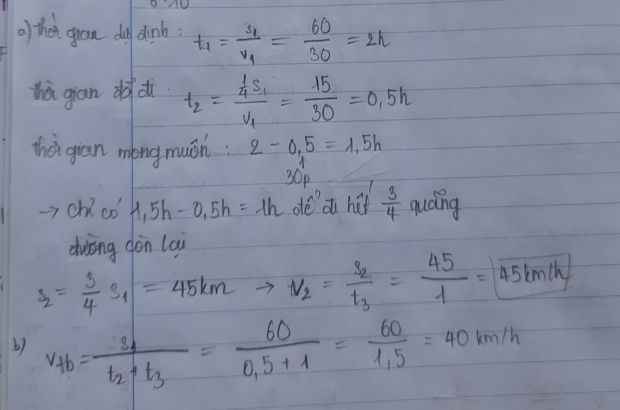 a) Thời gian dự định : t₁ = s₁/v₁ = 60/30 = 2h
thời gian đã đi : t₂ = ¼s₁/v₁ = 15/30 = 0,5h
thời gian mong muốn : 2 - 0,5 = 1,5h
30p
→ chỉ có 1,5h - 0,5h = 1h để đi hết 3/4 quãng
đường còn lại
s₂ = 3/4 s₁ = 45km → v₂ = s₂/t₃ = 45/1 = 45km/h
b) vtb = s₁/(t₂ + t₃) = 60/(0,5 + 1) = 60/1,5 = 40 km/h